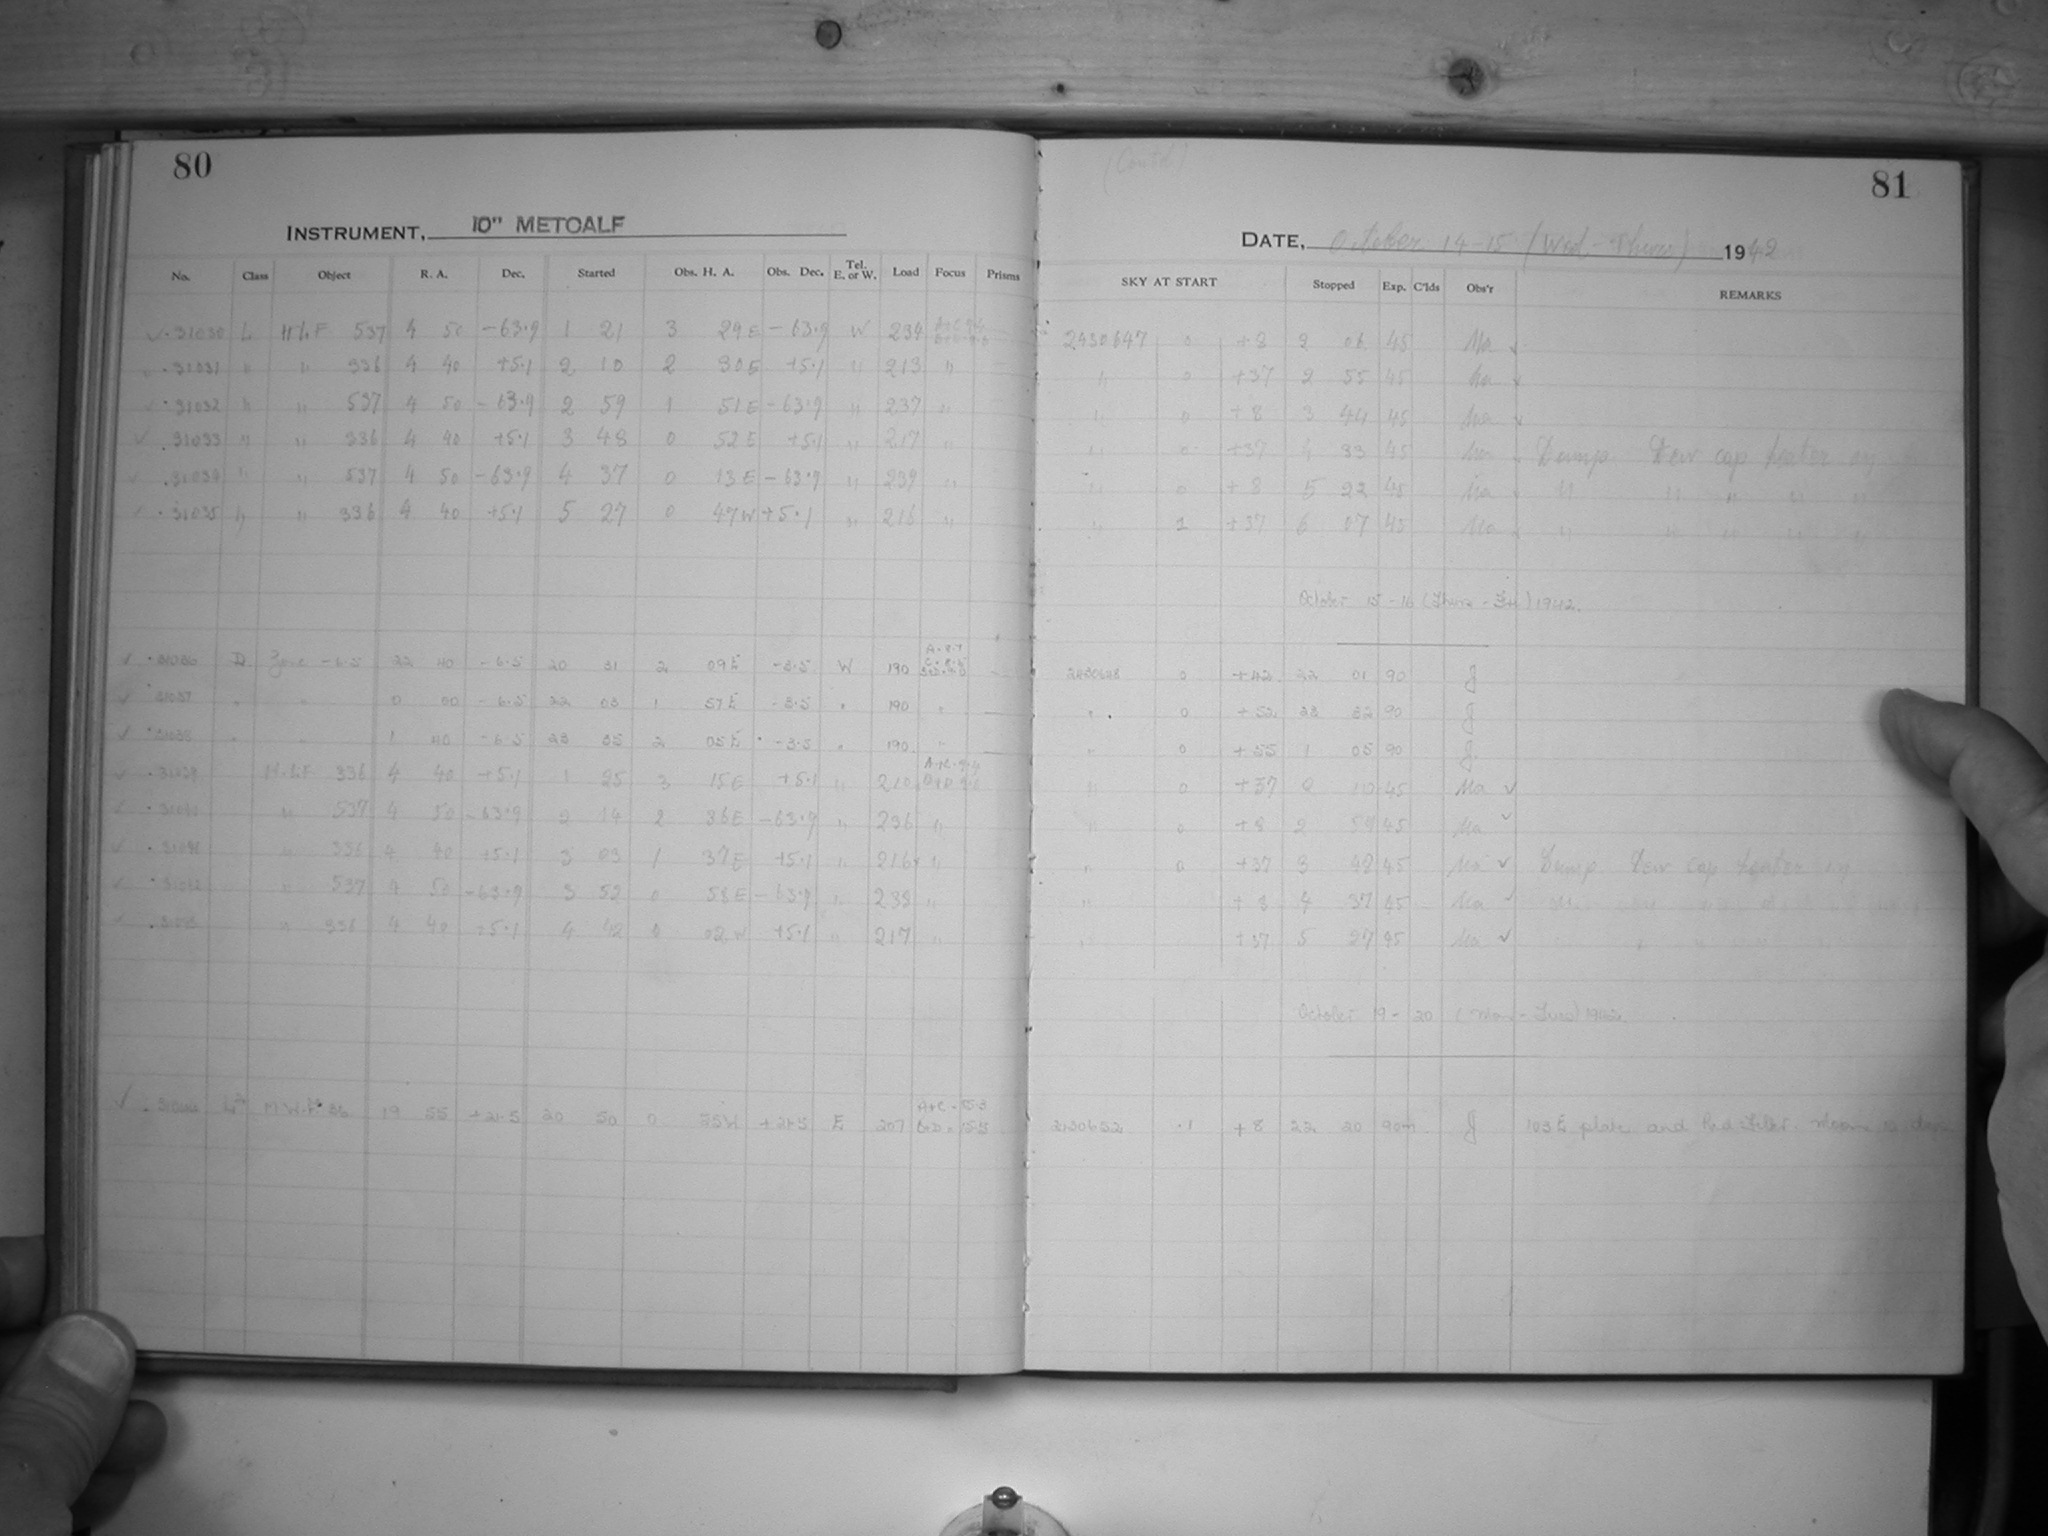 80
INSTRUMENT, 10" METCALF
No. Class Object R. A. Dec. Started Obs. H. A. Obs. Dec. Tel. E. or W. Load Focus Prisms
31030 L H.L.F 537 4 50 -63.9 1 21 3 29 E -63.9 W 234
.31031 " " 336 4 40 +5.1 2 10 2 30 E +5.1 " 213 "
.31032 " " 537 4 50 -63.9 2 59 1 51 E -63.9 " 237 "
.31033 " " 336 4 40 +5.1 3 48 0 52 E +5.1 " 217 "
.31034 " " 537 4 50 -63.9 4 37 0 13 E -63.9 " 239 "
.31035 " " 336 4 40 +5.1 5 27 0 47 W +5.1 " 216 "
.31036 D Zone -6.5 22 40 -6.5 20 31 2 09 E -3.5 W 190
31037 " " 0 00 -6.5 22 03 1 57 E -3.5 " 190 "
31038 " " 1 40 -6.5 23 35 2 05 E -3.5 " 190 "
.31039 H.L.F. 336 4 40 +5.1 1 25 3 15 E +5.1 " 210
.31040 " 537 4 50 -63.9 2 14 2 36 E -63.9 " 236 "
.31041 " 336 4 40 +5.1 3 03 1 37 E +5.1 " 216 "
.31042 " 537 4 50 -63.9 3 52 0 58 E -63.9 " 238 "
" 336 4 40 +5.1 4 42 0 02 W +5.1 " 217 "
M.W.F. 36 19 55 +21.5 20 50 0 55 W +21.5 E 207
(Contd.)
81
DATE, October 14-15 (Wed - Thurs) 1942
SKY AT START Stopped Exp. C'lds Obs'r REMARKS
2430647 0 +8 2 06 45 Ma
" 0 +37 2 55 45 Ma
" 0 +8 3 44 45 Ma
" 0 +37 4 33 45 Ma Damp. Dew cap heater on
" 0 +8 5 22 45 Ma " " " " "
" 1 +37 6 07 45 Ma " " " " "
October 15-16 (Thurs - Fri) 1942.
2430648 0 +42 22 01 90 J
" 0 +52 23 33 90 J
" 0 +55 1 05 90 J
" 0 +37 2 10 45 Ma
" 0 +8 2 59 45 Ma
" 0 +37 3 48 45 Ma Damp. Dew cap heater on
" +8 4 37 45 Ma
" +37 5 27 45 Ma
October 19-20 (Mon - Tues) 1942.
2430652 .1 +8 22 20 90m J 103 E plate and Red Filter.